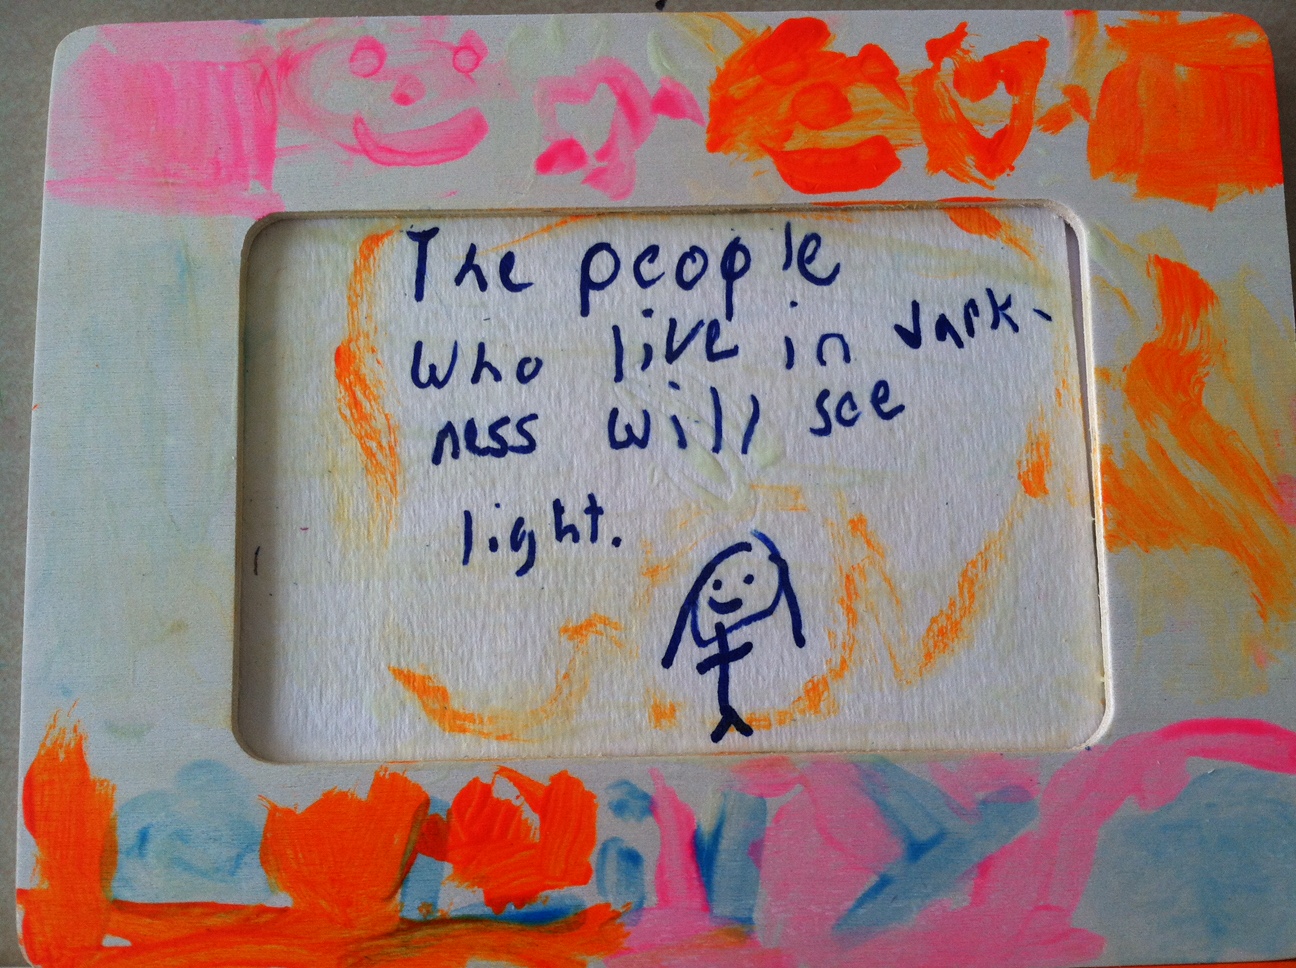 The people
who live in dark-
ness will see
light.